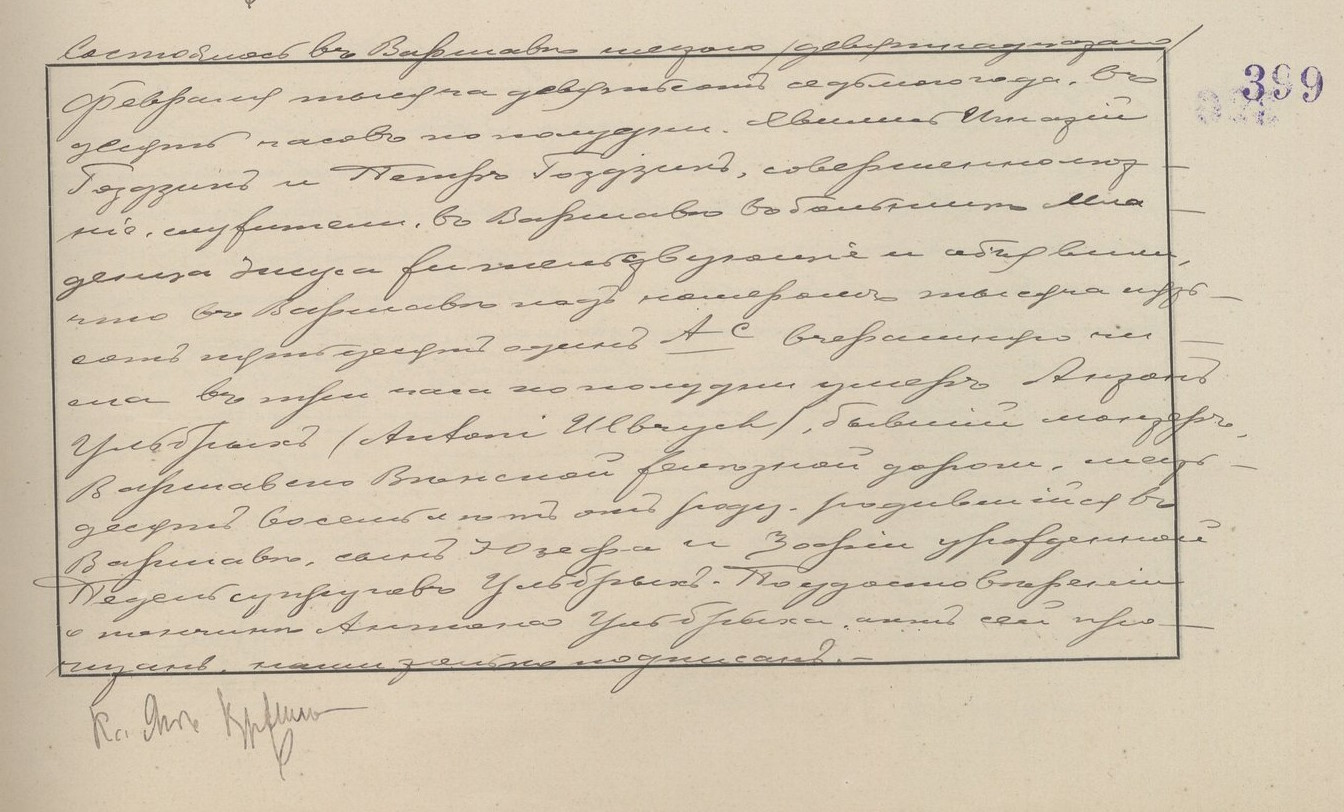 Состоялось въ Варшавѣ шестого /девятнадцатаго/
399
Февраля тысяча девятьсотъ седьмого года, въ
десять часовъ по полудни. Явились Игнатій
Гоздзикъ и Петръ Гоздзикъ, совершеннолѣт-
ніе, служители, въ Варшавѣ въ больницѣ Мла
денца Іисуса жительствующіе и объявили,
что въ Варшавѣ подъ номеромъ тысяча пять-
сотъ пятьдесятъ одинъ А С вчерашняго чи
сла въ три часа по полудни умеръ Антонъ
Ульбрыхъ /Antoni Ulbrych/, бывшій монтеръ,
Варшавско Вѣнской желѣзной дороги, шесть-
десятъ восемь лѣтъ отъ роду, родившійся въ
Варшавѣ, сынъ Юзефа и Зофіи урожденной
супруговъ Ульбрыхъ. По удостовѣреніи
о кончинѣ Антона Ульбрыха, актъ сей про-
читанъ, нами только подписанъ.-
Кс. Янъ